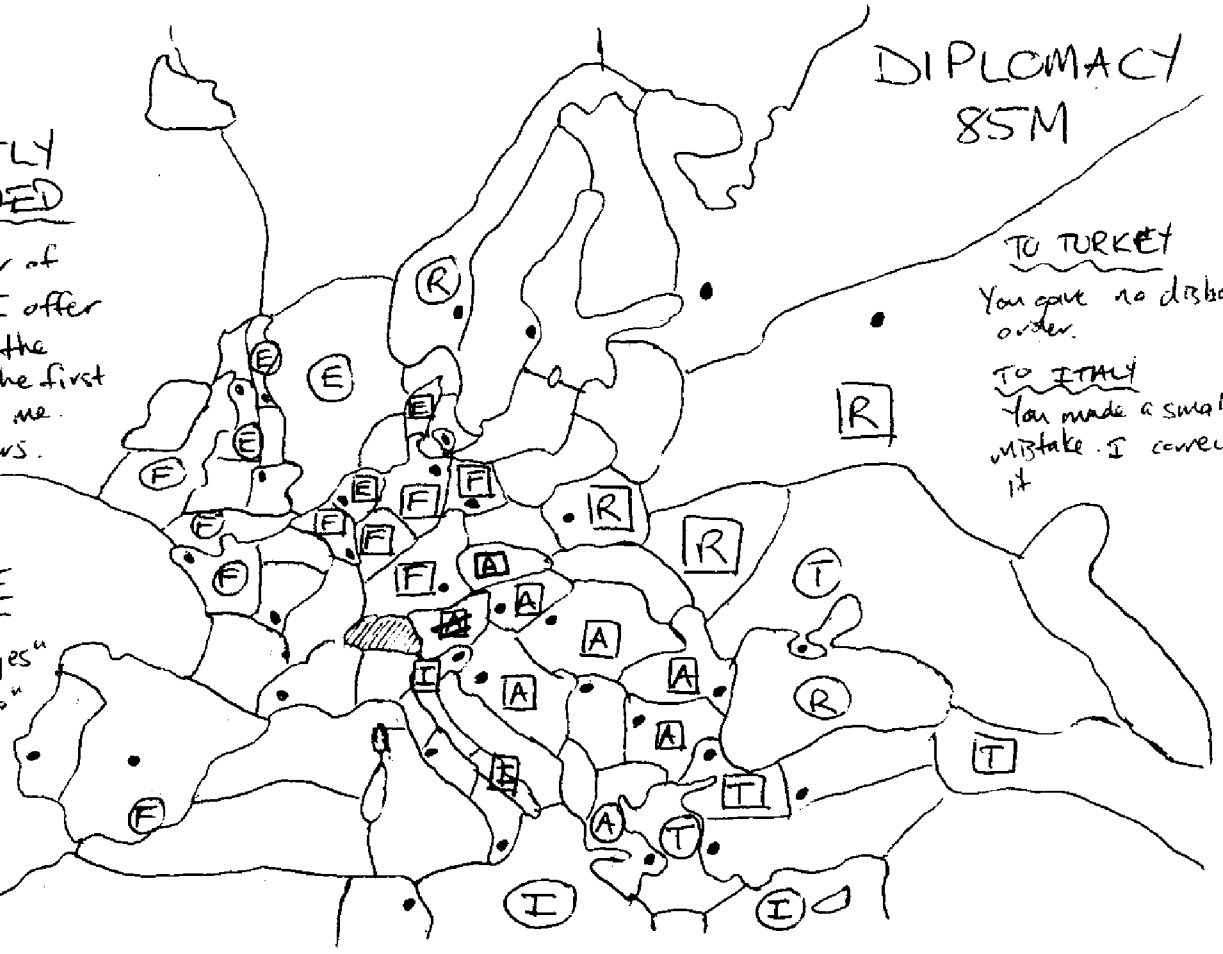 DIPLOMACY
85M
TLY
DED
r of
I offer
the
he first
me.
ws.
TO TURKEY
You gave no disba
order.
TO ITALY
You made a smal
mistake. I correc
it
E
E
yes"
R
E
E
E
E
F
E
F
F
R
F
F
F
R
R
F
F
A
A
A
T
A
I
A
A
R
A
T
F
I
A
T
T
I
I